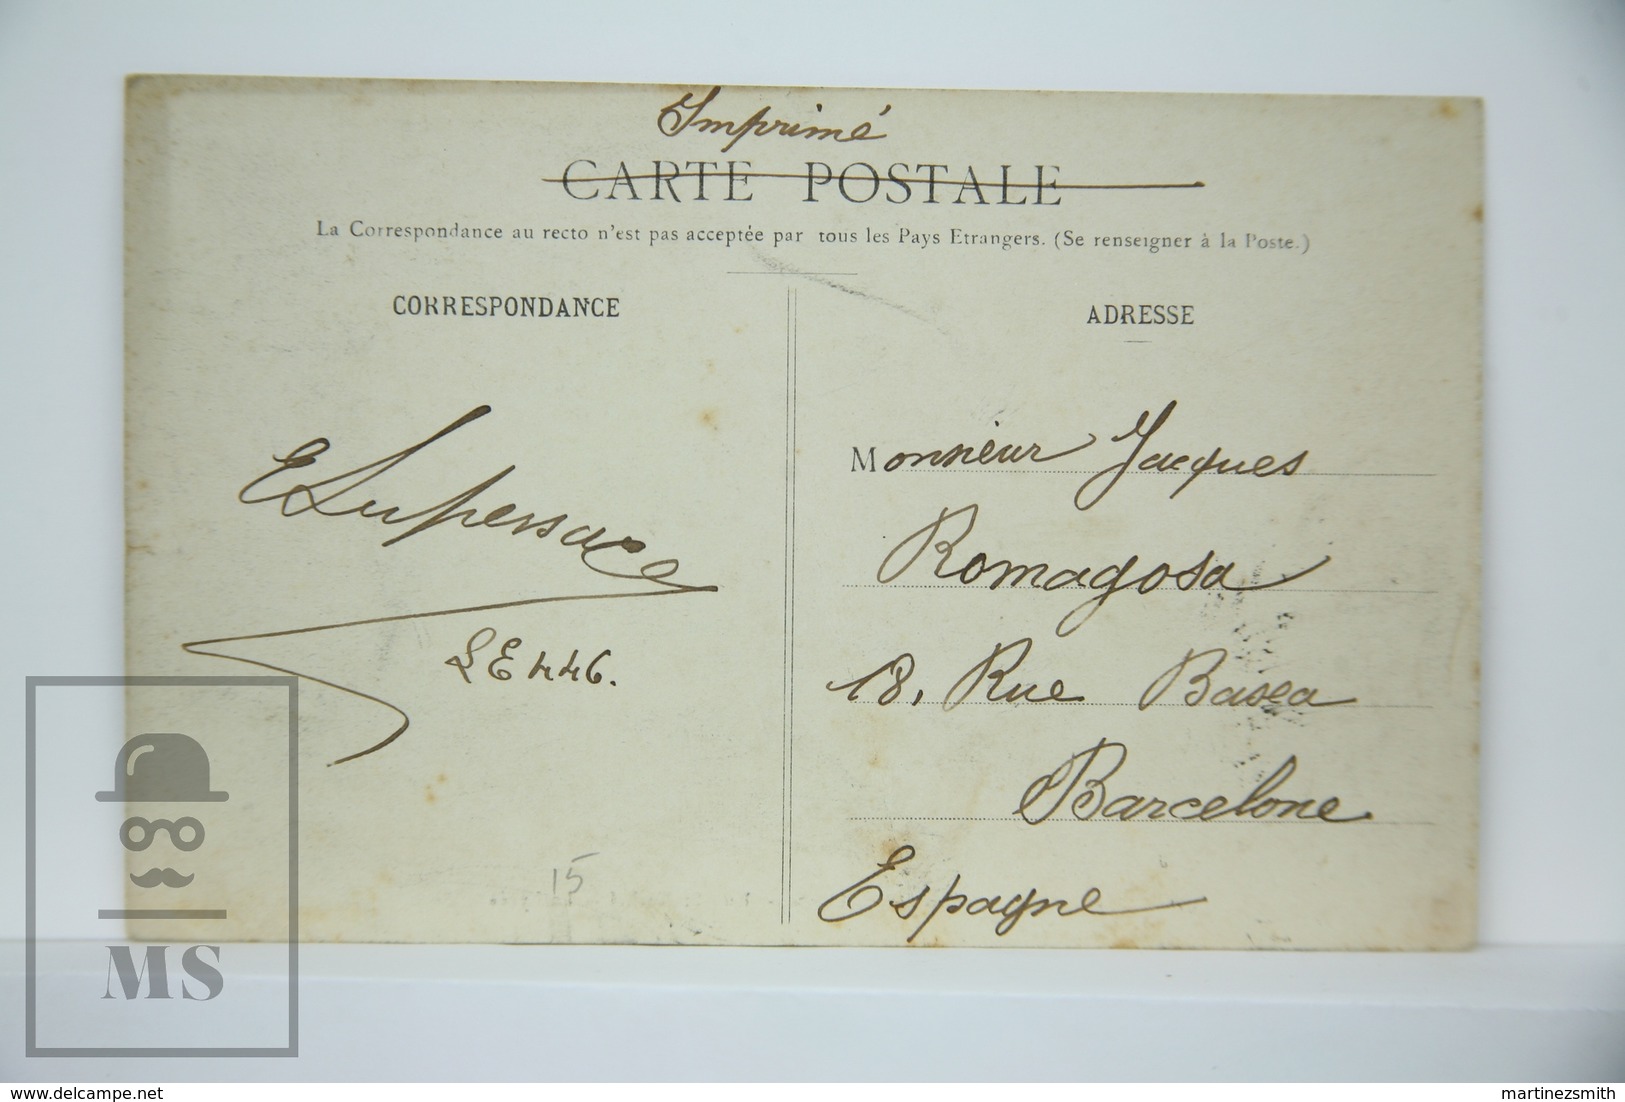 Imprimé
CARTE POSTALE
La Correspondance au recto n'est pas acceptée par tous les Pays Etrangers. (Se renseigner à la Poste.)
CORRESPONDANCE
ADRESSE
Monsieur Jacques
Romagosa
18, Rue Basea
Barcelone
Espagne
E Lupersac
LE 446.
15
MS
www.delcampe.net
martinezsmith